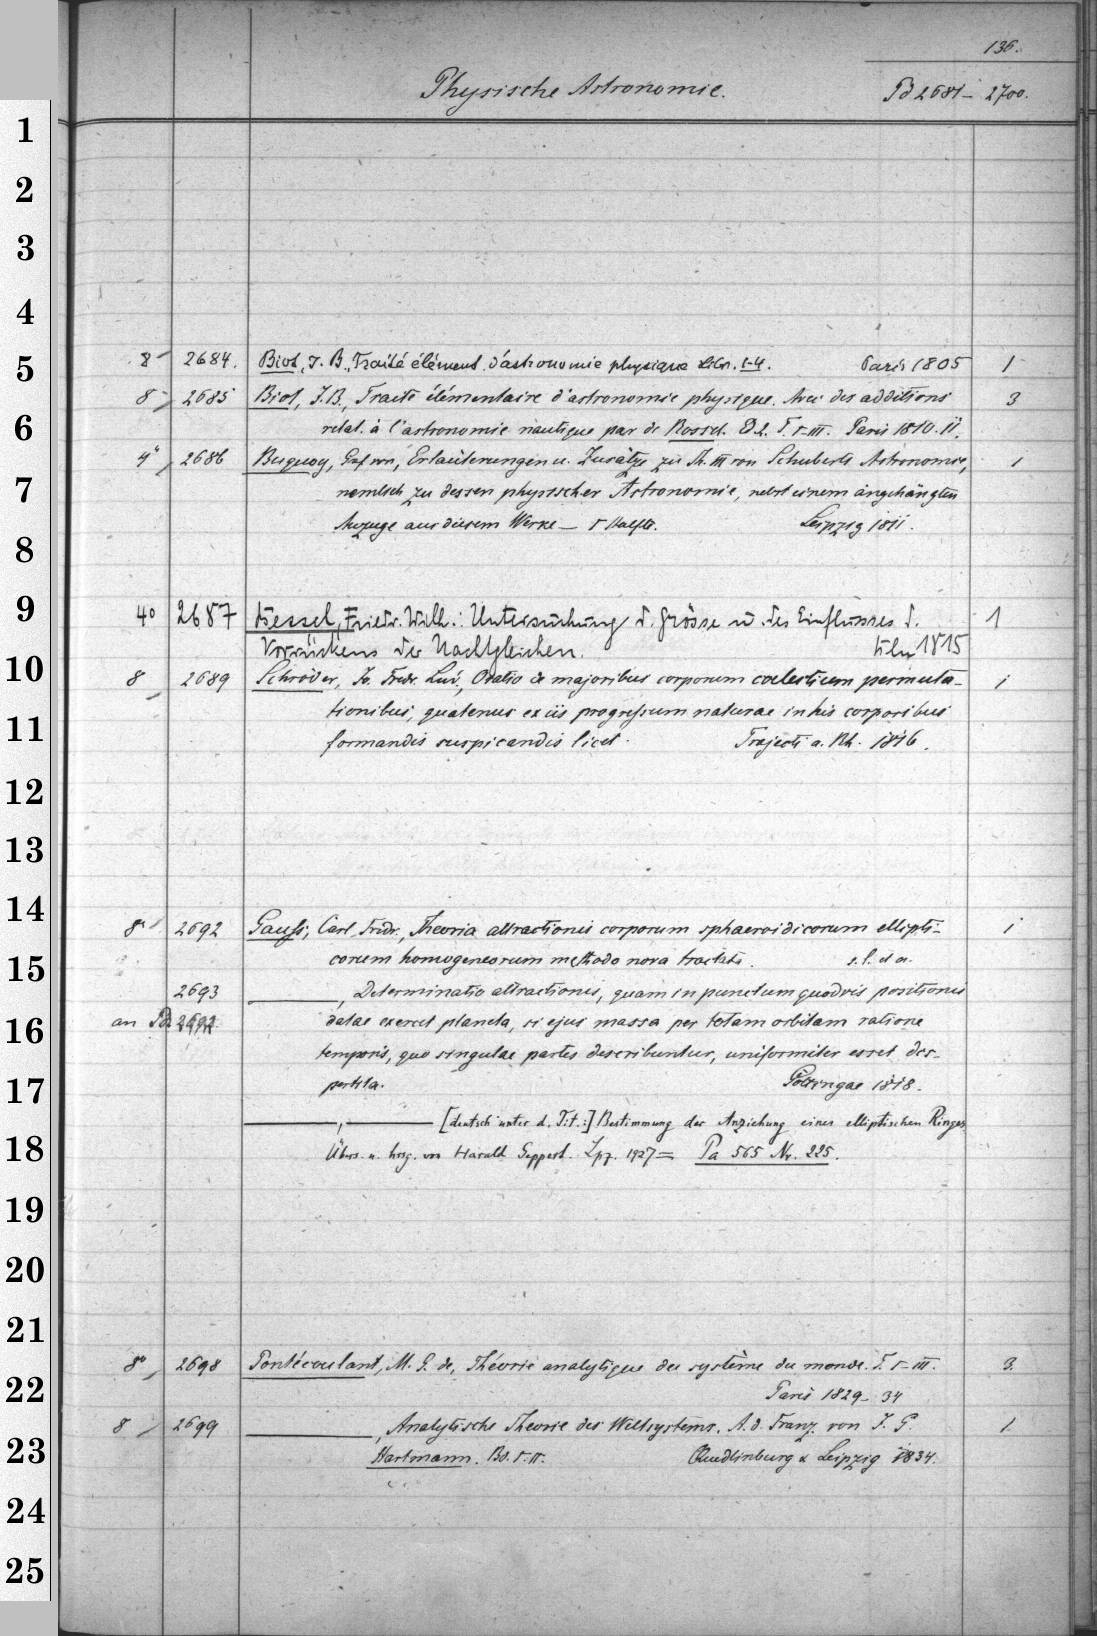 136.
Physische Astronomie. Pd 2681 - 2700.
1
2
3
4
5
6
7
8
9
10
11
12
13
14
15
16
17
18
19
20
21
22
23
24
25
8 2684. Biot, J. B., Traité élément. d'astronomie physique Livr. 1-4. Paris 1805 1
8 2685 Biot, J.B., Traité élémentaire d'astronomie physique. Avec des additions 3
relat. à l'astronomie nautique par de Rossel. Ed 2. T. I-III. Paris 1810. 11.
4° 2686 Buquoy, Graf von, Erläuterungen u. Zusätze zu Th. III von Schuberts Astronomie, 1
nemlich zu dessen physischer Astronomie, nebst einem angehängten
Auszuge aus diesem Werke — I Hälfte. Leipzig 1811.
4° 2687 Bessel, Friedr. Wilh.: Untersuchung d. Grösse u. des Einflusses d. 1
Vorrückens der Nachtgleichen. Bln 1815
8 2689 Schröder, Jo. Fredr. Lud., Oratio de majoribus corporum coelestium permuta- 1
tionibus, quatenus ex iis progressum naturae in his corporibus
formandis suspicandis licet. Trajecti a. Rh. 1816.
8° 2692 Gauss, Carl Fridr., Theoria attractionis corporum sphaeroidicorum ellipti- 1
corum homogeneorum methodo nova tractata. s. l. et a.
2693 ———, Determinatio attractionis, quam in punctum quodvis positionis
an Pd 2692 datae exercet planeta, si ejus massa per totam orbitam ratione
temporis, quo singulae partes describuntur, uniformiter esset dis-
pertita. Gottingae 1818.
———, ——— [deutsch unter d. Tit.:] Bestimmung der Anziehung eines elliptischen Ringes
Übers. u. hrsg. von Harald Geppert. Lpz. 1927 = Pa 565 Nr. 225.
8° 2698 Pontécoulant, M. G. de, Théorie analytique du système du monde. T. I-III. 3.
Paris 1829 - 34
8 2699 ———, Analytische Theorie des Weltsystems. A. d. Franz. von J. G. 1.
Hartmann. Bd. I-II. Quedlinburg & Leipzig 1834.